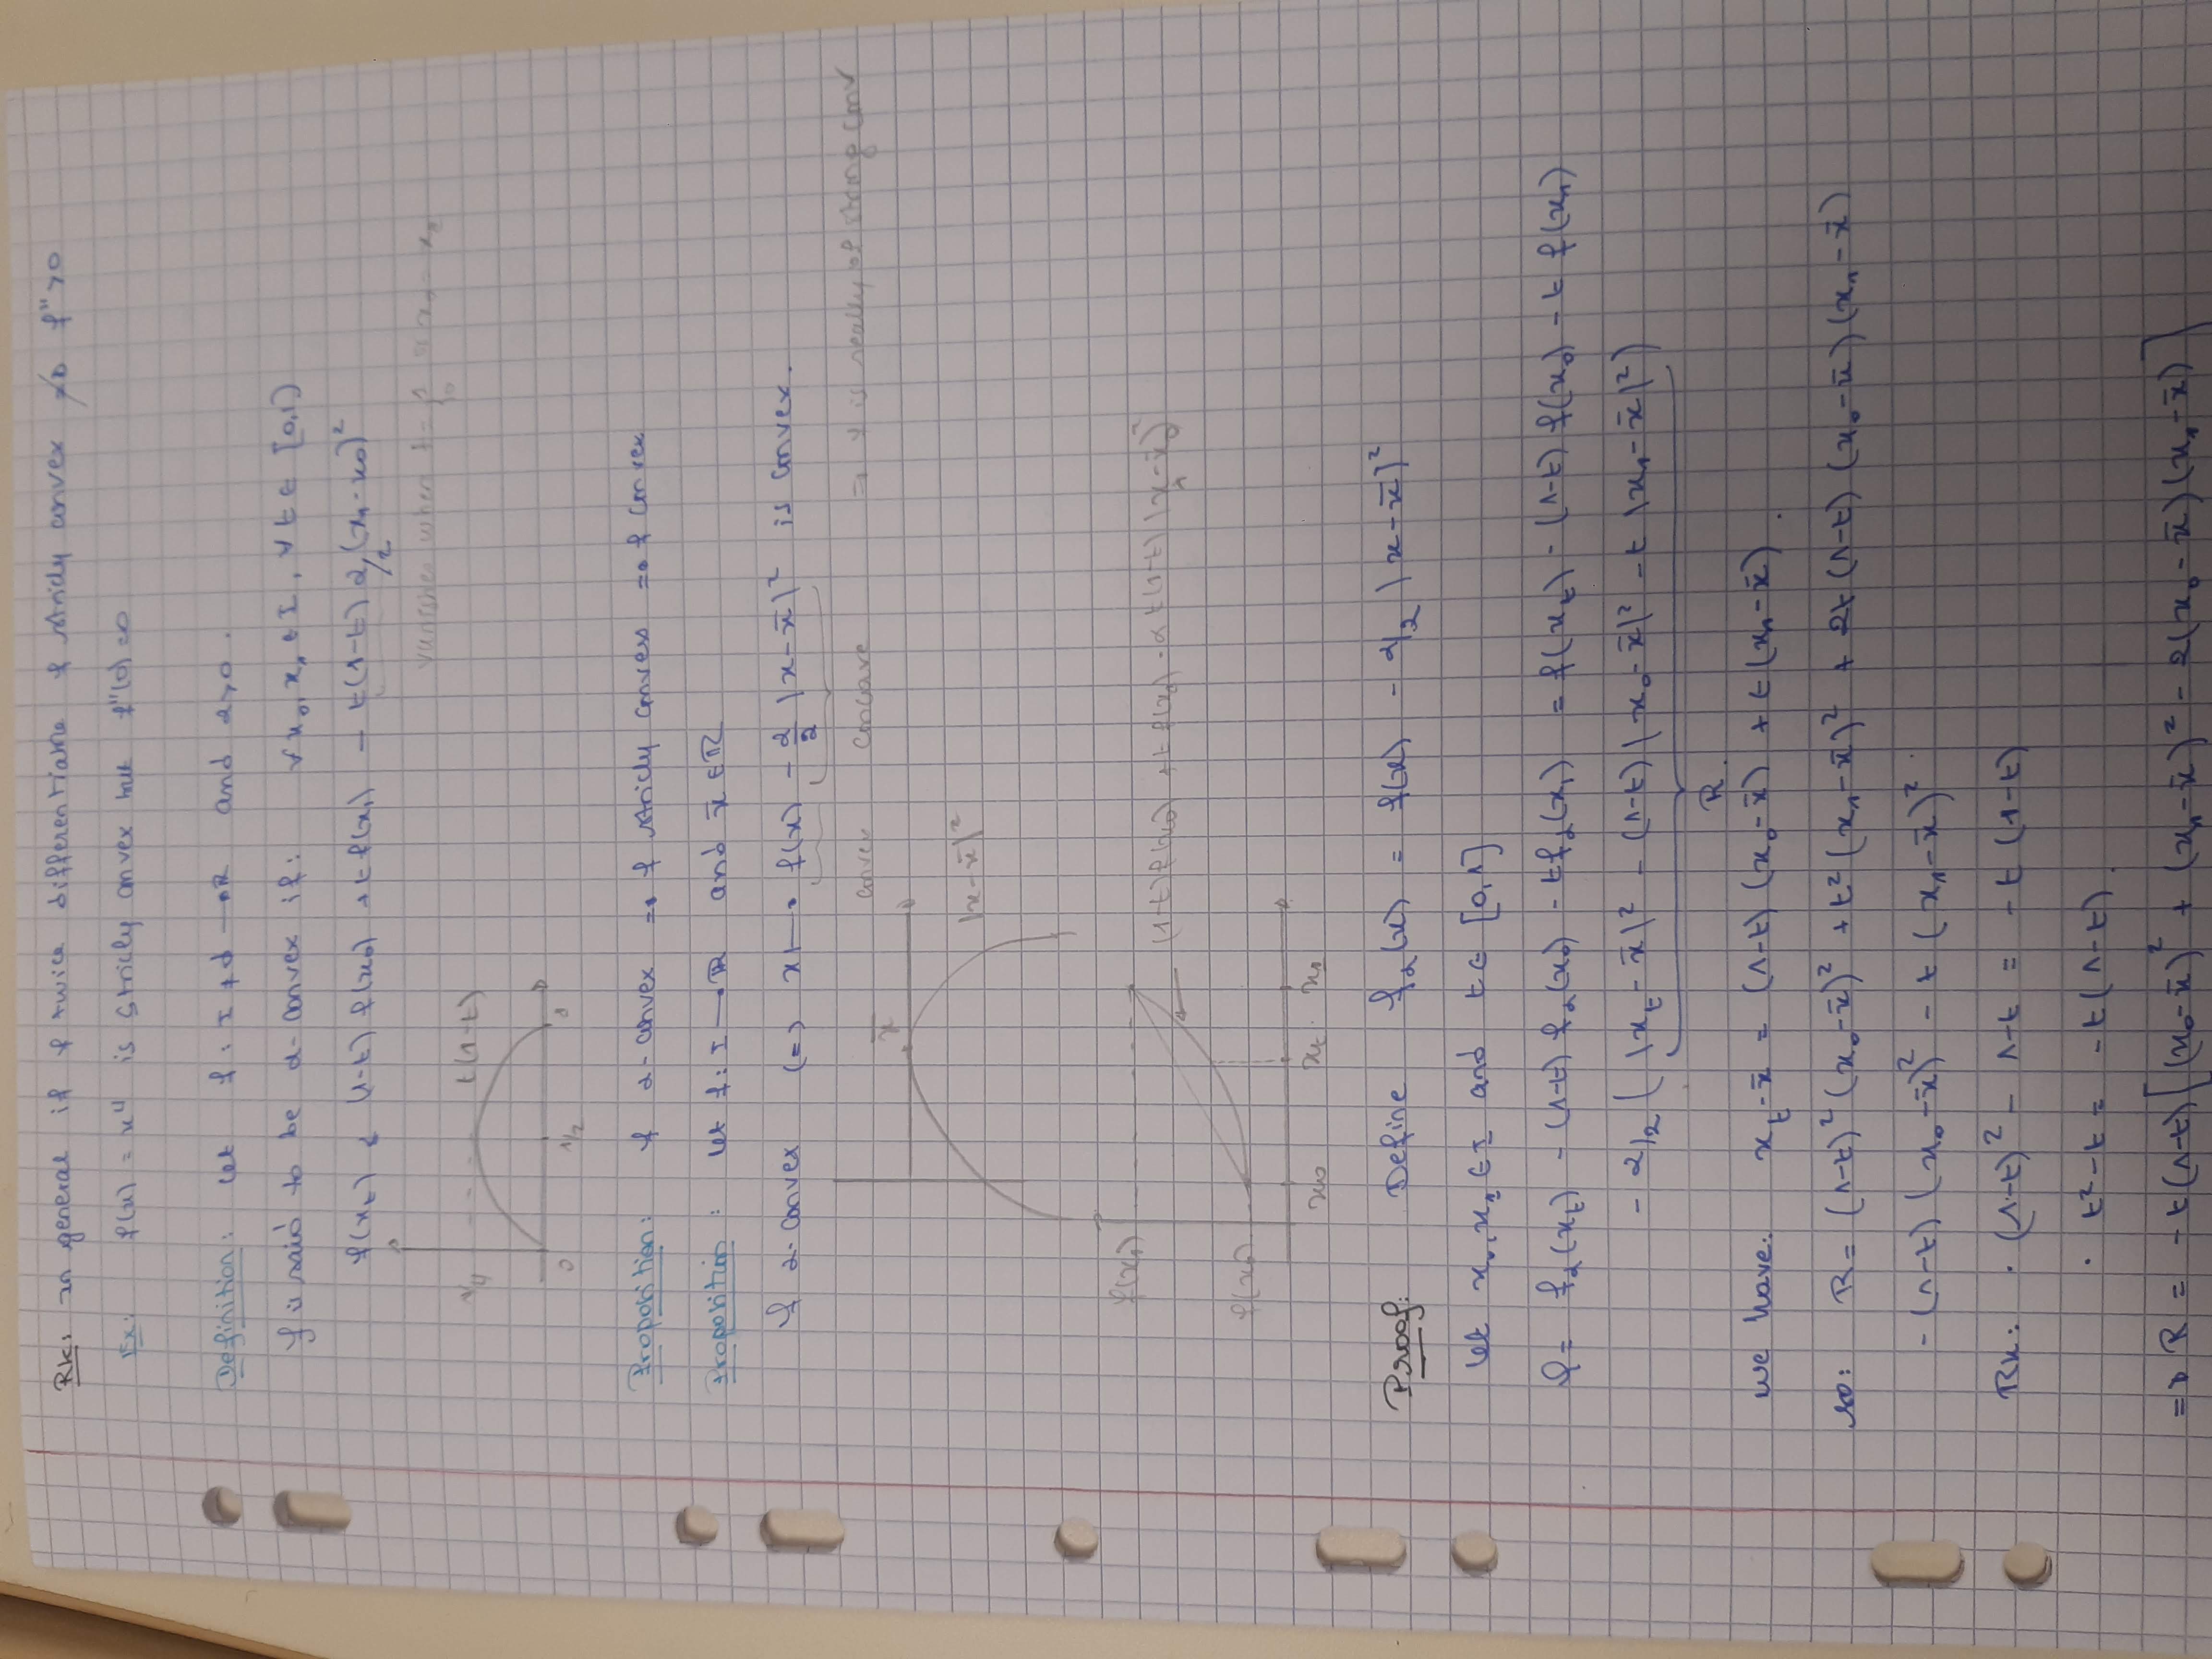 Rk: In general if f twice differentiable f stricly convex ≠> f'' > 0
Ex: f(x) = x⁴ is stricly convex but f''(0) = 0
Definition: Let f : I ≠ ϕ → ℝ and α > 0.
f is said to be α-convex if: ∀ x₀, x₁ ∈ I, ∀ t ∈ [0,1]
f(x_t) ≤ (1-t) f(x₀) + t f(x₁) - t(1-t) α/2 (x₁-x₀)²
vanishes when t =
1/4 t(1-t)
0 1/2 1
Proposition: f α-convex => f stricly convexe => f convex
Proposition: Let f : I → ℝ and x̄ ∈ ℝ
f α-convex <=> x ↦ f(x) - α/2 |x-x̄|² is convex.
convex concave => f is really of strong conv
x̄
|x-x̄|²
f(x₁)
(1-t) f(x₀) + t f(x₁) - α t(1-t)
f(x₀)
x₀ x_t x₁
Proof: Define f_α(x) = f(x) - α/2 |x-x̄|²
Let x₀, x₁ ∈ I and t ∈ [0,1]
= f_α(x_t) - (1-t) f_α(x₀) - t f_α(x₁) = f(x_t) - (1-t) f(x₀) - t f(x₁)
- α/2 ( |x_t-x̄|² - (1-t) |x₀-x̄|² - t |x₁-x̄|² )
R.
we have: x_t-x̄ = (1-t) (x₀-x̄) + t (x₁-x̄).
so: R = (1-t)² (x₀-x̄)² + t² (x₁-x̄)² + 2t (1-t) (x₀-x̄) (x₁-x̄)
- (1-t) (x₀-x̄)² - t (x₁-x̄)²
Rk: · (1-t)² - 1-t = -t (1-t)
· t²-t = -t(1-t).
=> R = -t(1-t) [(x₀-x̄)² + (x₁-x̄)² - 2(x₀-x̄)(x₁-x̄)]